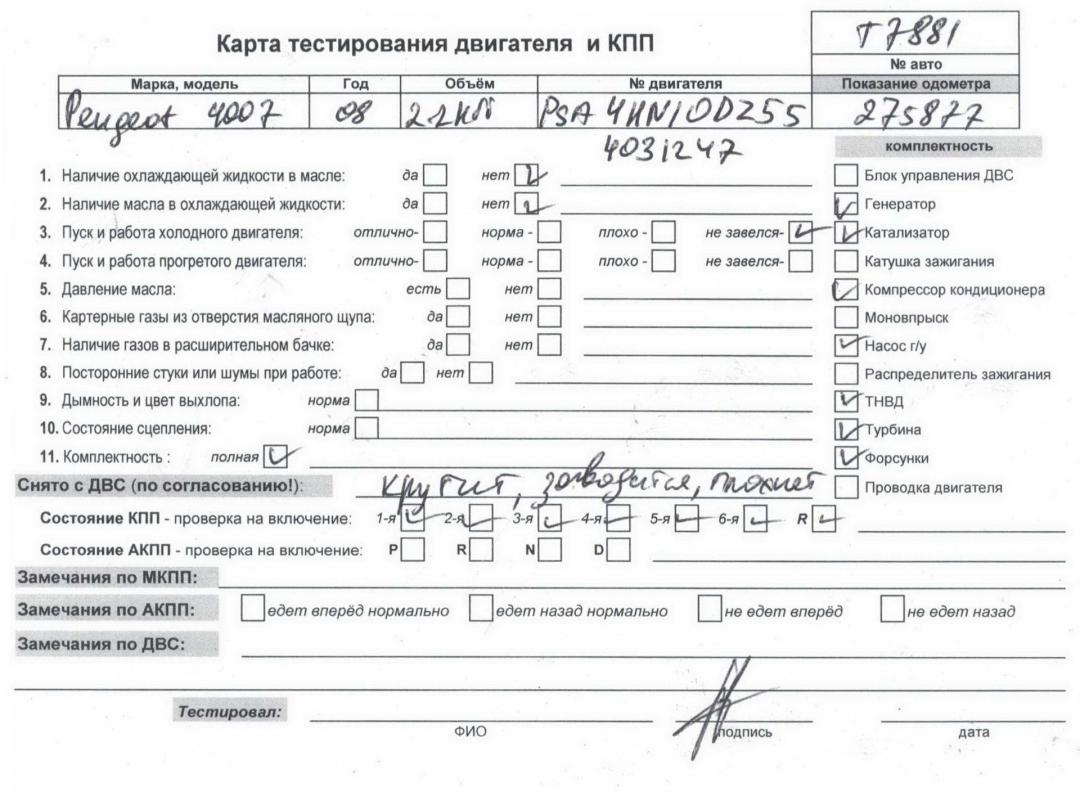 Карта тестирования двигателя и КПП
T7881
№ авто
Марка, модель Год Объём № двигателя Показание одометра
Peugeot 4007 08 PSA 4HN10DZ55 275877
4031247
комплектность
1. Наличие охлаждающей жидкости в масле: да нет
Блок управления ДВС
2. Наличие масла в охлаждающей жидкости: да нет
Генератор
3. Пуск и работа холодного двигателя: отлично- норма - плохо - не завелся-
Катализатор
4. Пуск и работа прогретого двигателя: отлично- норма - плохо - не завелся-
Катушка зажигания
5. Давление масла: есть нет
Компрессор кондиционера
6. Картерные газы из отверстия масляного щупа: да нет
Моновпрыск
7. Наличие газов в расширительном бачке: да нет
Насос г/у
8. Посторонние стуки или шумы при работе: да нет
Распределитель зажигания
9. Дымность и цвет выхлопа: норма
ТНВД
10. Состояние сцепления: норма
Турбина
11. Комплектность : полная
Форсунки
Снято с ДВС (по согласованию!): крутит, заводится, глохнет
Проводка двигателя
Состояние КПП - проверка на включение: 1-я 2-я 3-я 4-я 5-я 6-я R
Состояние АКПП - проверка на включение: P R N D
Замечания по МКПП:
Замечания по АКПП: едет вперёд нормально едет назад нормально не едет вперёд не едет назад
Замечания по ДВС:
Тестировал:
ФИО подпись дата